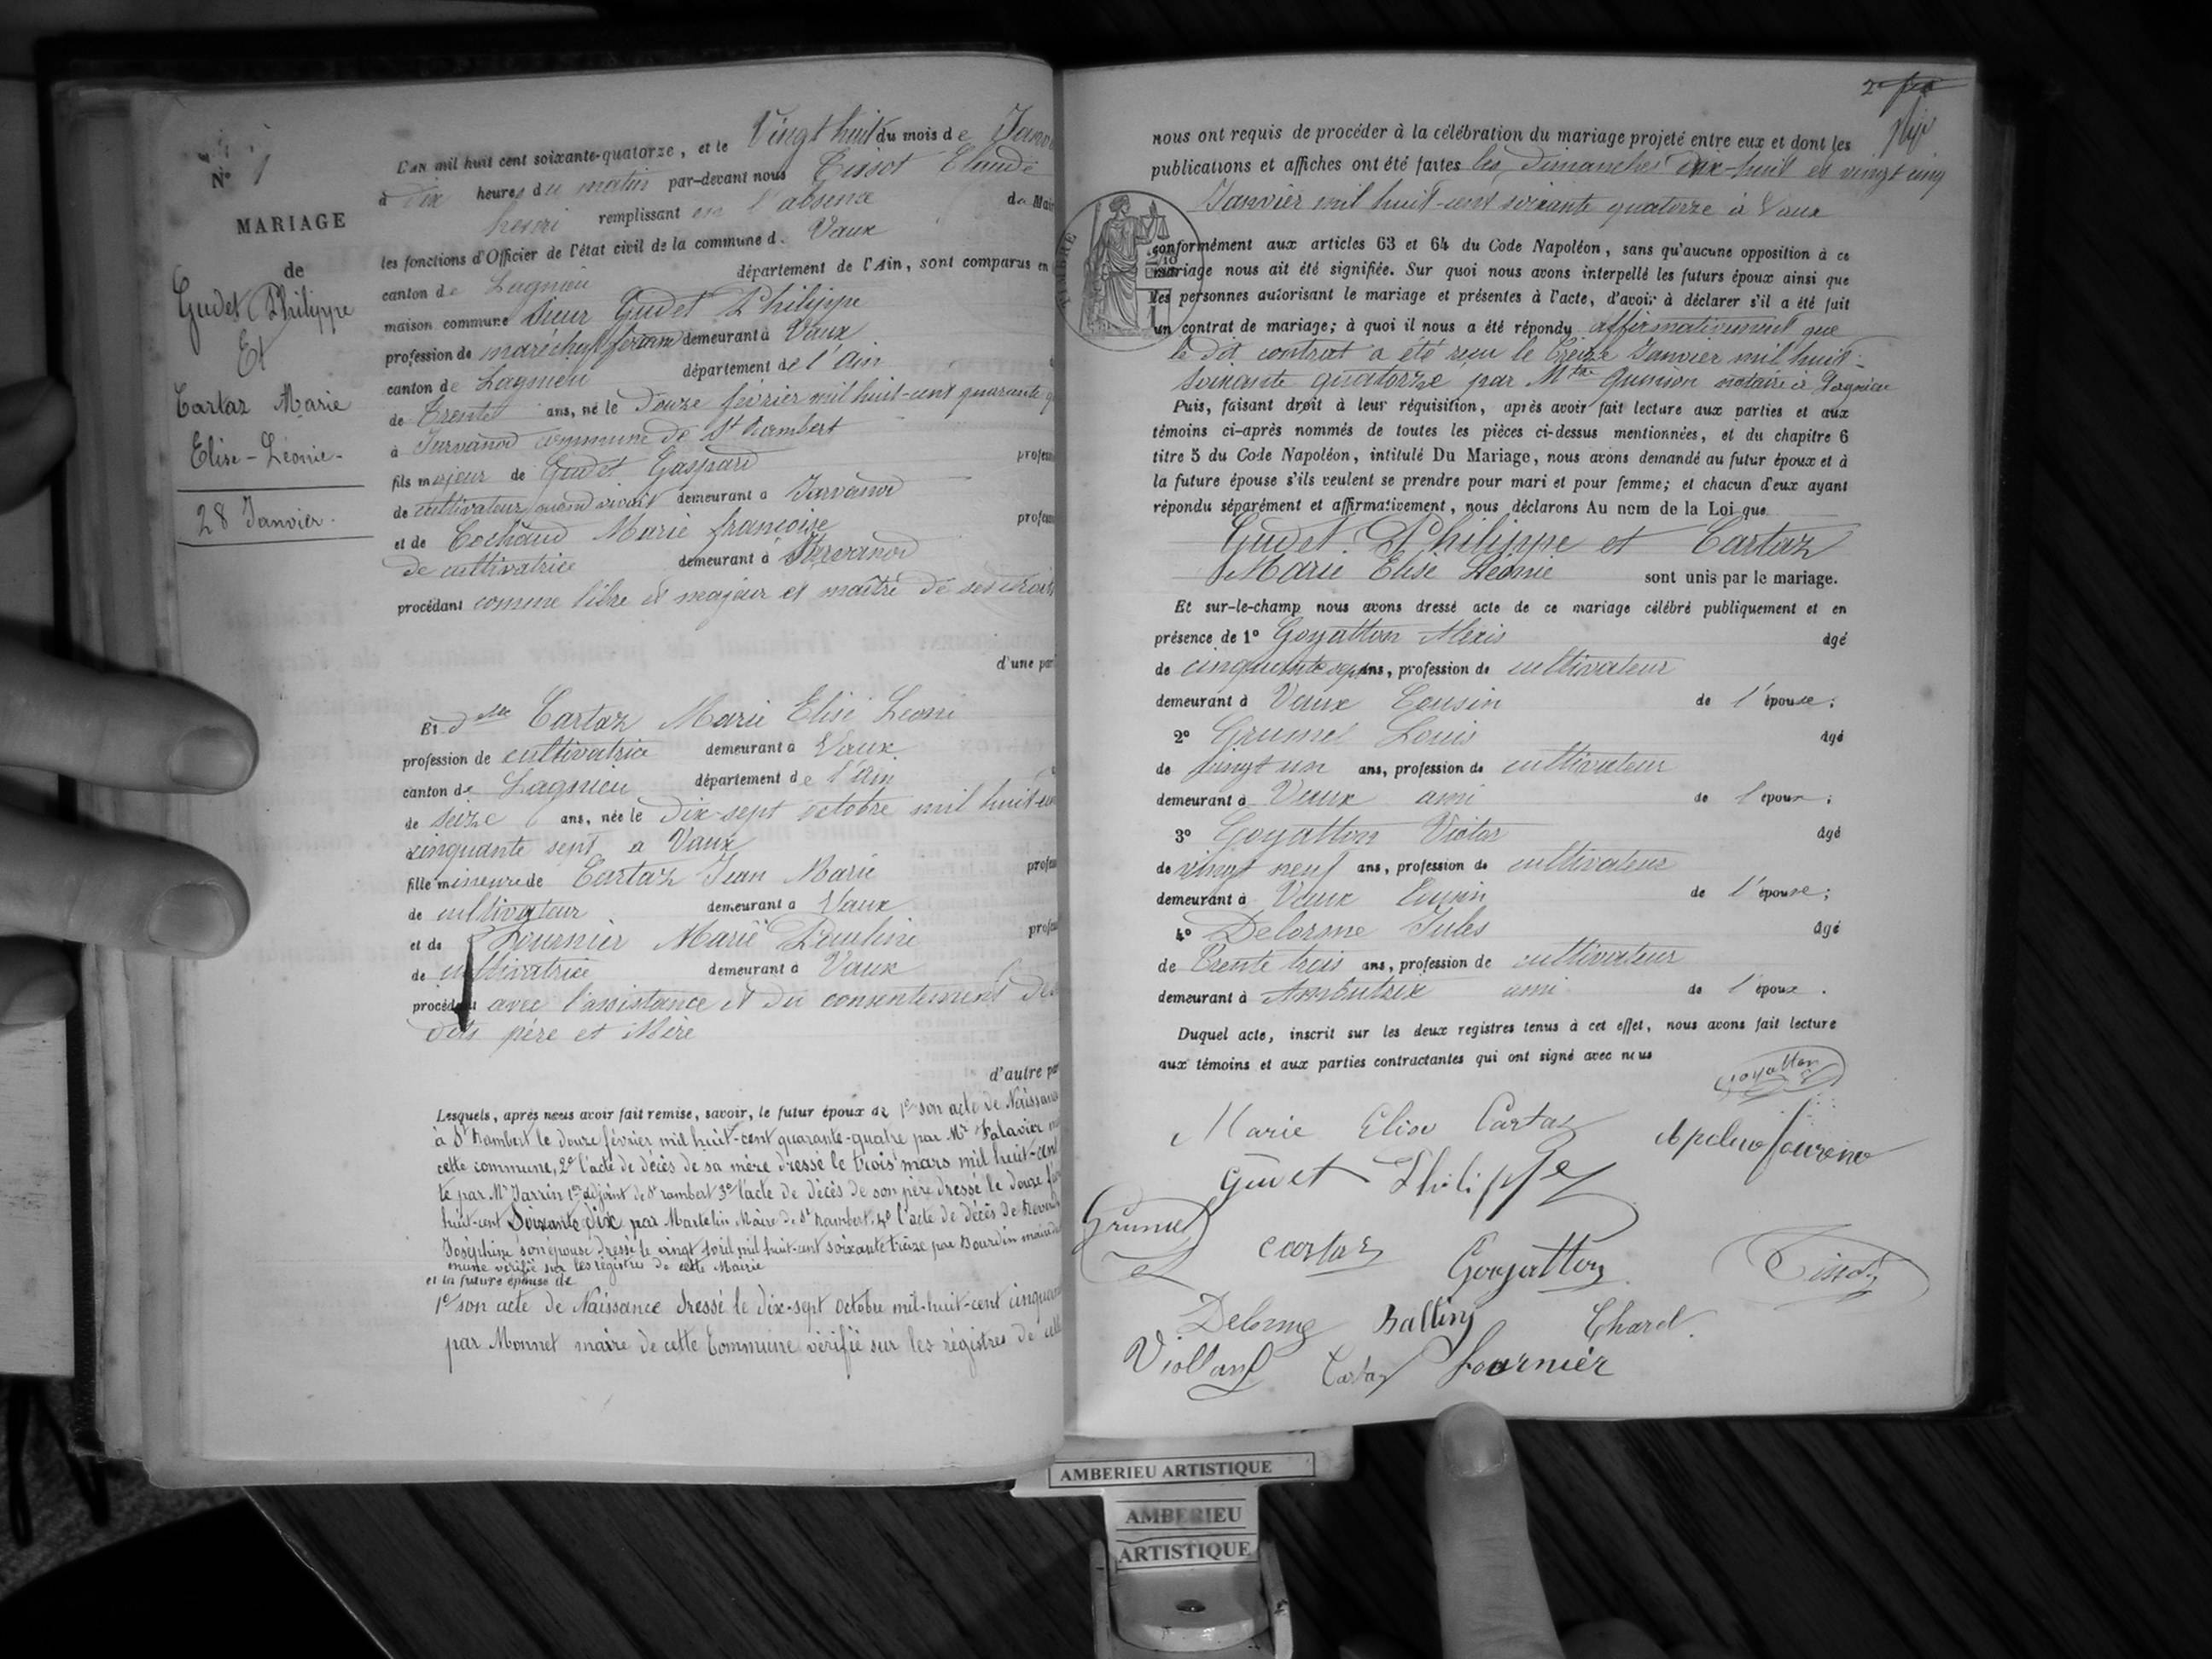 N° 1
MARIAGE
de
Gudet Philippe
Et
Cartaz Marie
Elise-Léonie-
28 Janvier.
L'AN mil huit cent soixante-quatorze, et le Vingt huit du mois de Janv
à dix heures du matin par-devant nous Tissot Claude
henri remplissant en l'absence du Mair
les fonctions d'Officier de l'état civil de la commune d. Vaux
canton de Lagnieu département de l'Ain, sont comparus en
maison commune Sieur Gudet Philippe
profession de maréchal ferrant demeurant à Vaux
canton de Lagnieu département de l'Ain
de Trente ans, né le Douze février mil huit-cent quarante q
à Javanod commune de St Rambert
fils majeur de Gudet Gaspard profess
de cultivateur quand vivait demeurant à Javanod
et de Cochaud Marie françoise profess
de cultivatrice demeurant à
procédant comme libre et majeur et maître de ses droits
d'une par
Et dlle Cartaz Marie Elise Leoni
profession de cultivatrice demeurant à Vaux
canton de Lagnieu département de l'Ain
de seize ans, née le dix-sept octobre mil huit-cen
cinquante sept à Vaux
fille mineure de Cartaz Jean Marie profess
de cultivateur demeurant à Vaux
et de Fournier Marie Pauline profess
de cultivatrice demeurant à Vaux
procédant avec l'assistance et du consentement des
dits père et Mère
d'autre par
Lesquels, après nous avoir fait remise, savoir, le futur époux de 1° son acte de Naissanc
à St Rambert le douze février mil huit-cent quarante-quatre par Mr Falavier
cette commune, 2° l'acte de décès de sa mère dressé le trois mars mil huit-cent
te par Mr Jarrin 1er adjoint de St rambert 3° l'acte de décès de son père dressé le douze
huit-cent Soixante dix par Martelin Maire de St Rambert, 4° l'acte de décès de
Joséphine son épouse dressé le vingt avril mil huit-cent soixante treize par Bourdin maire
mune vérifié sur les régistres de cette Mairie
et la future épouse de
1° son acte de Naissance dressé le dix-sept octobre mil-huit-cent cinquan
par Monnet maire de cette Commune vérifié sur les régistres de cett
nous ont requis de procéder à la célébration du mariage projeté entre eux et dont les
publications et affiches ont été faites les Dimanches dix-huit et vingt cinq
Janvier mil huit-cent soixante quatorze à Vaux
TIMBRE
conformément aux articles 63 et 64 du Code Napoléon, sans qu'aucune opposition à ce
mariage nous ait été signifiée. Sur quoi nous avons interpellé les futurs époux ainsi que
les personnes autorisant le mariage et présentes à l'acte, d'avoir à déclarer s'il a été fait
un contrat de mariage; à quoi il nous a été répondu affirmativement que
le dit contrat a été reçu le treize Janvier mil huit-
soixante quatorze par Mtre notaire à Lagnieu
Puis, faisant droit à leur réquisition, après avoir fait lecture aux parties et aux
témoins ci-après nommés de toutes les pièces ci-dessus mentionnées, et du chapitre 6
titre 5 du Code Napoléon, intitulé Du Mariage, nous avons demandé au futur époux et à
la future épouse s'ils veulent se prendre pour mari et pour femme; et chacun d'eux ayant
répondu séparément et affirmativement, nous déclarons Au nom de la Loi que
Gudet Philippe et Cartaz
Marie Elise Léonie sont unis par le mariage.
Et sur-le-champ nous avons dressé acte de ce mariage célébré publiquement et en
présence de 1° Goyatton Alexis âgé
de cinquante sept ans, profession de cultivateur
demeurant à Vaux Cousin de l'épouse;
2° Grumel Louis âgé
de vingt un ans, profession de cultivateur
demeurant à Vaux ami de l'époux;
3° Goyatton Victor âgé
de vingt neuf ans, profession de cultivateur
demeurant à Vaux Cousin de l'épouse;
4° Delorme Jules âgé
de Trente trois ans, profession de cultivateur
demeurant à Ambutrix ami de l'époux.
Duquel acte, inscrit sur les deux registres tenus à cet effet, nous avons fait lecture
aux témoins et aux parties contractantes qui ont signé avec nous
Goyatton
Marie Elise Cartaz
Gudet Philippe
Grumel
Cartaz Goyatton Tissot
Delorme Ballin Charel
Viollan Cartaz fournier
AMBERIEU ARTISTIQUE
AMBERIEU
ARTISTIQUE